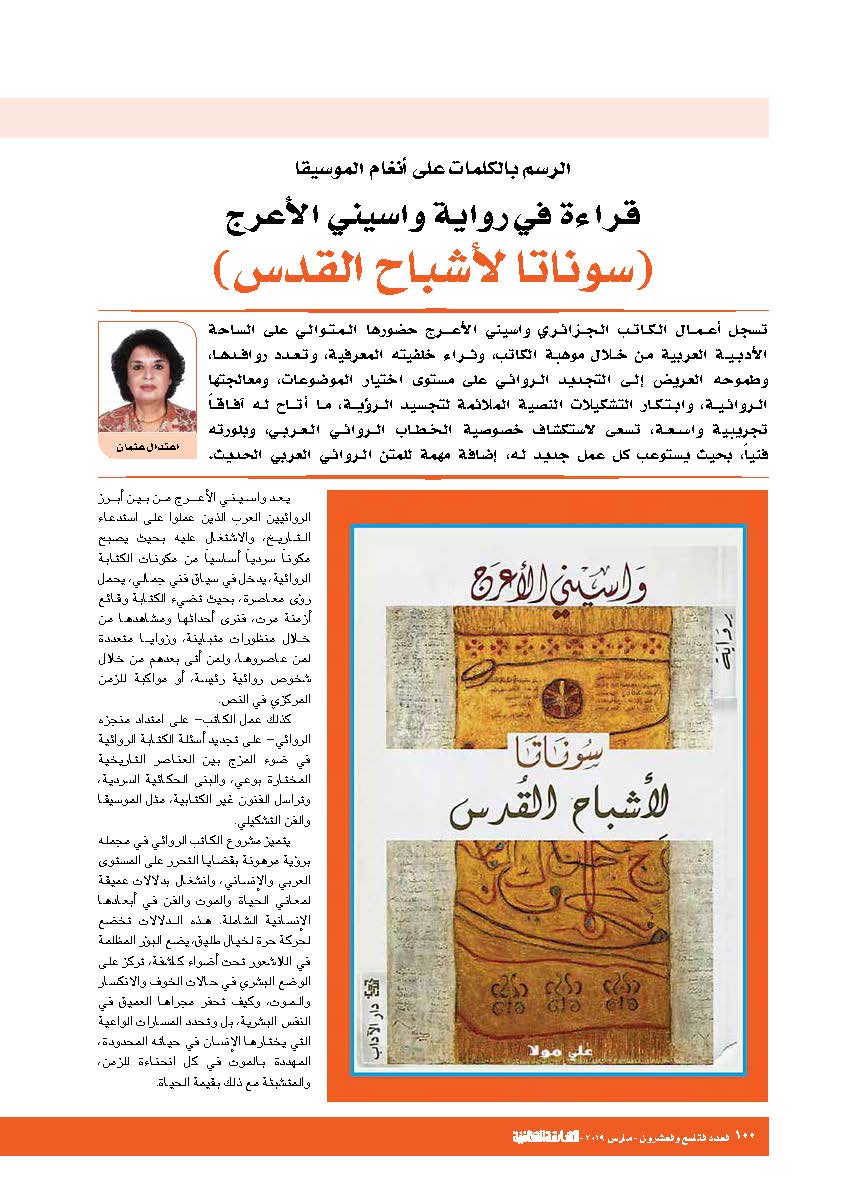 الرسم بالكلمات على أنغام الموسيقا
قراءة في رواية واسيني الأعرج
(سوناتا لأشباح القدس)
تسجل أعمال الكاتب الجزائري واسيني الأعرج حضورها المتوالي على الساحة
الأدبية العربية من خلال موهبة الكاتب، وثراء خلفيته المعرفية، وتعدد روافدها،
وطموحه العريض إلى التجديد الروائي على مستوى اختيار الموضوعات، ومعالجتها
الروائية، وابتكار التشكيلات النصية الملائمة لتجسيد الرؤية، ما أتاح له آفاقاً
تجريبية واسعة، تسعى لاستكشاف خصوصية الخطاب الروائي العربي، وبلورته
فنياً، بحيث يستوعب كل عمل جديد له، إضافة مهمة للمتن الروائي العربي الحديث.
اعتدال عثمان
يعد واسيني الأعرج من بين أبرز
الروائيين العرب الذين عملوا على استدعاء
التاريخ، والاشتغال عليه بحيث يصبح
مكوناً سردياً أساسياً من مكونات الكتابة
الروائية، يدخل في سياق فني جمالي، يحمل
رؤى معاصرة، بحيث تضيء الكتابة وقائع
أزمنة مرت، فنرى أحداثها ومشاهدها من
خلال منظورات متباينة، وزوايا متعددة
لمن عاصروها، ولمن أتى بعدهم من خلال
شخوص روائية رئيسة، أو مواكبة للزمن
المركزي في النص.
كذلك عمل الكاتب– على امتداد منجزه
الروائي– على تجديد أسئلة الكتابة الروائية
في ضوء المزج بين العناصر التاريخية
المختارة بوعي، والبنى الحكائية السردية،
وتراسل الفنون غير الكتابية، مثل الموسيقا
والفن التشكيلي.
يتميز مشروع الكاتب الروائي في مجمله
برؤية مرهونة بقضايا التحرر على المستوى
العربي والإنساني، وانشغال بدلالات عميقة
لمعاني الحياة والموت والفن في أبعادها
الإنسانية الشاملة. هذه الدلالات تخضع
لحركة حرة لخيال طليق، يضع البؤر المظلمة
في اللاشعور تحت أضواء كاشفة، تركز على
الوضع البشري في حالات الخوف والانكسار
والموت، وكيف تحفر مجراها العميق في
النفس البشرية، بل وتحدد المسارات الواعية
التي يختارها الإنسان في حياته المحدودة،
المهددة بالموت في كل انحناءة للزمن،
والمتشبثة مع ذلك بقيمة الحياة.
واسيني الأعرج
رواية
سوناتا
لأشباح القدس
دار الآداب
علي مولا
١٠٠ العدد التاسع والعشرون - مارس ٢٠١٩ -